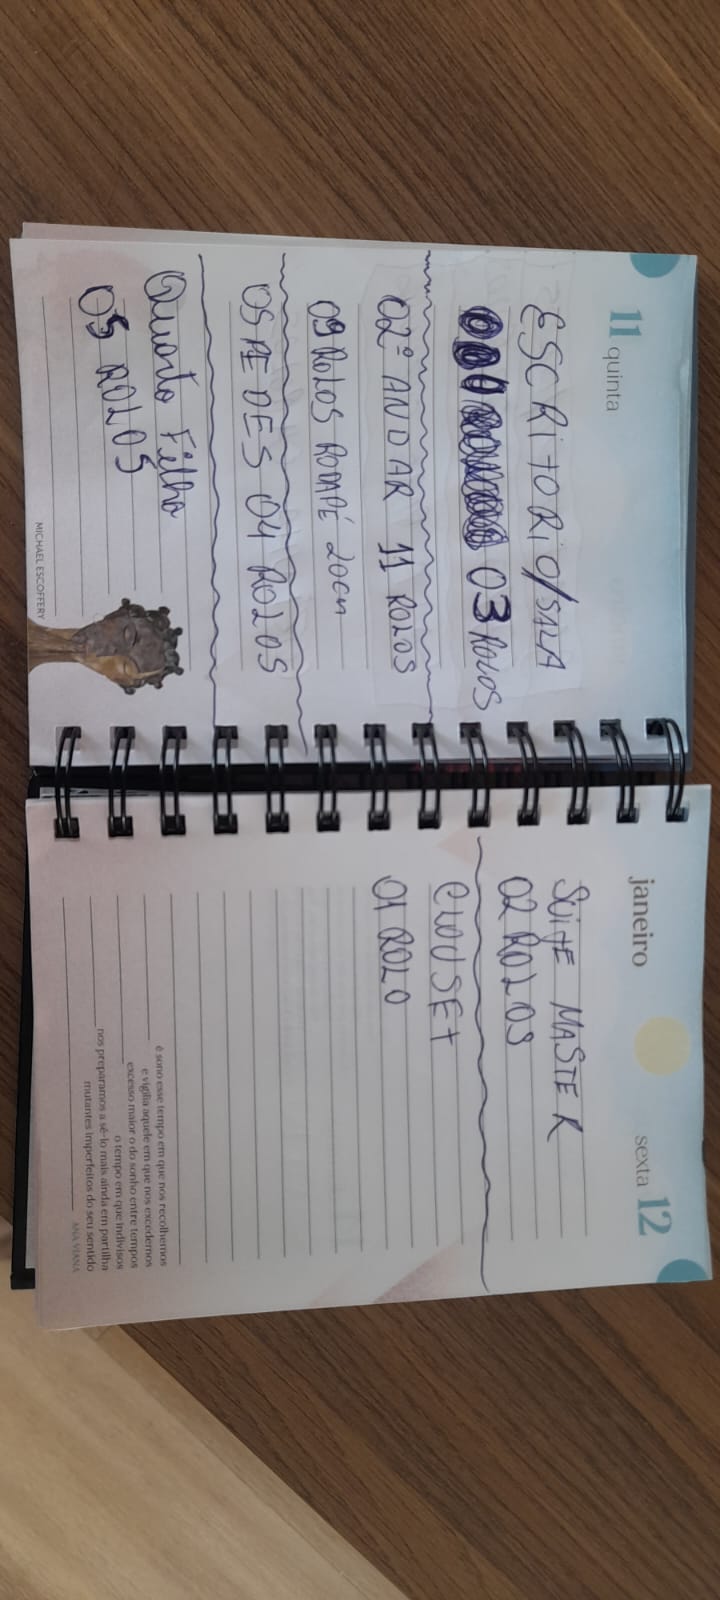 11 quinta
ESCRITORIO/SALA
03 ROLOS
02º ANDAR 11 ROLOS
09 ROLOS RODAPÉ 20cm
OSPEDES 04 ROLOS
Quarto Filha
05 ROLOS
MICHAEL ESCOFFERY
janeiro
sexta 12
SUITE MASTER
02 ROLOS
CLOUSET
01 ROLO
é sono esse tempo em que nos recolhemos
e vigília aquele em que nos excedemos
excesso maior o do sonho entre tempos
o tempo em que indivisos
nos preparamos a sê-lo mais ainda em partilha
mutantes imperfeitos do seu sentido
ANA VIANA